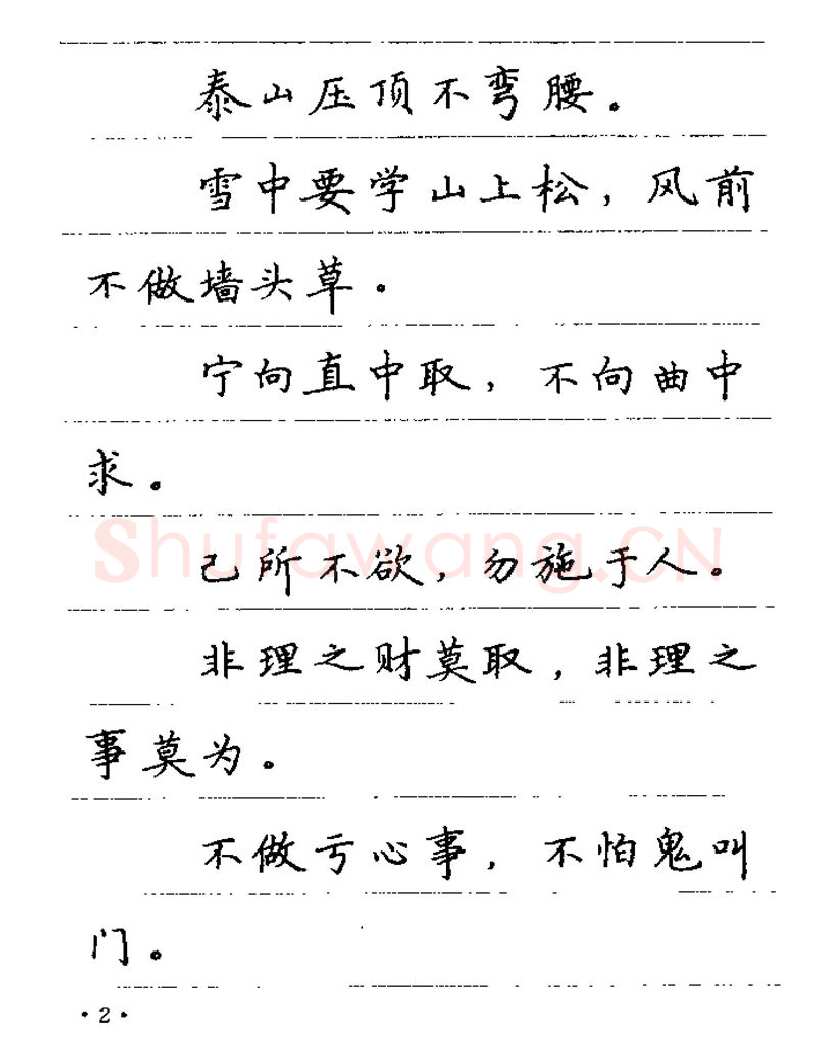 泰山压顶不弯腰。
雪中要学山上松，风前
不做墙头草。
宁向直中取，不向曲中
求。
Shufawang.CN
己所不欲，勿施于人。
非理之财莫取，非理之
事莫为。
不做亏心事，不怕鬼叫
门。
·2·